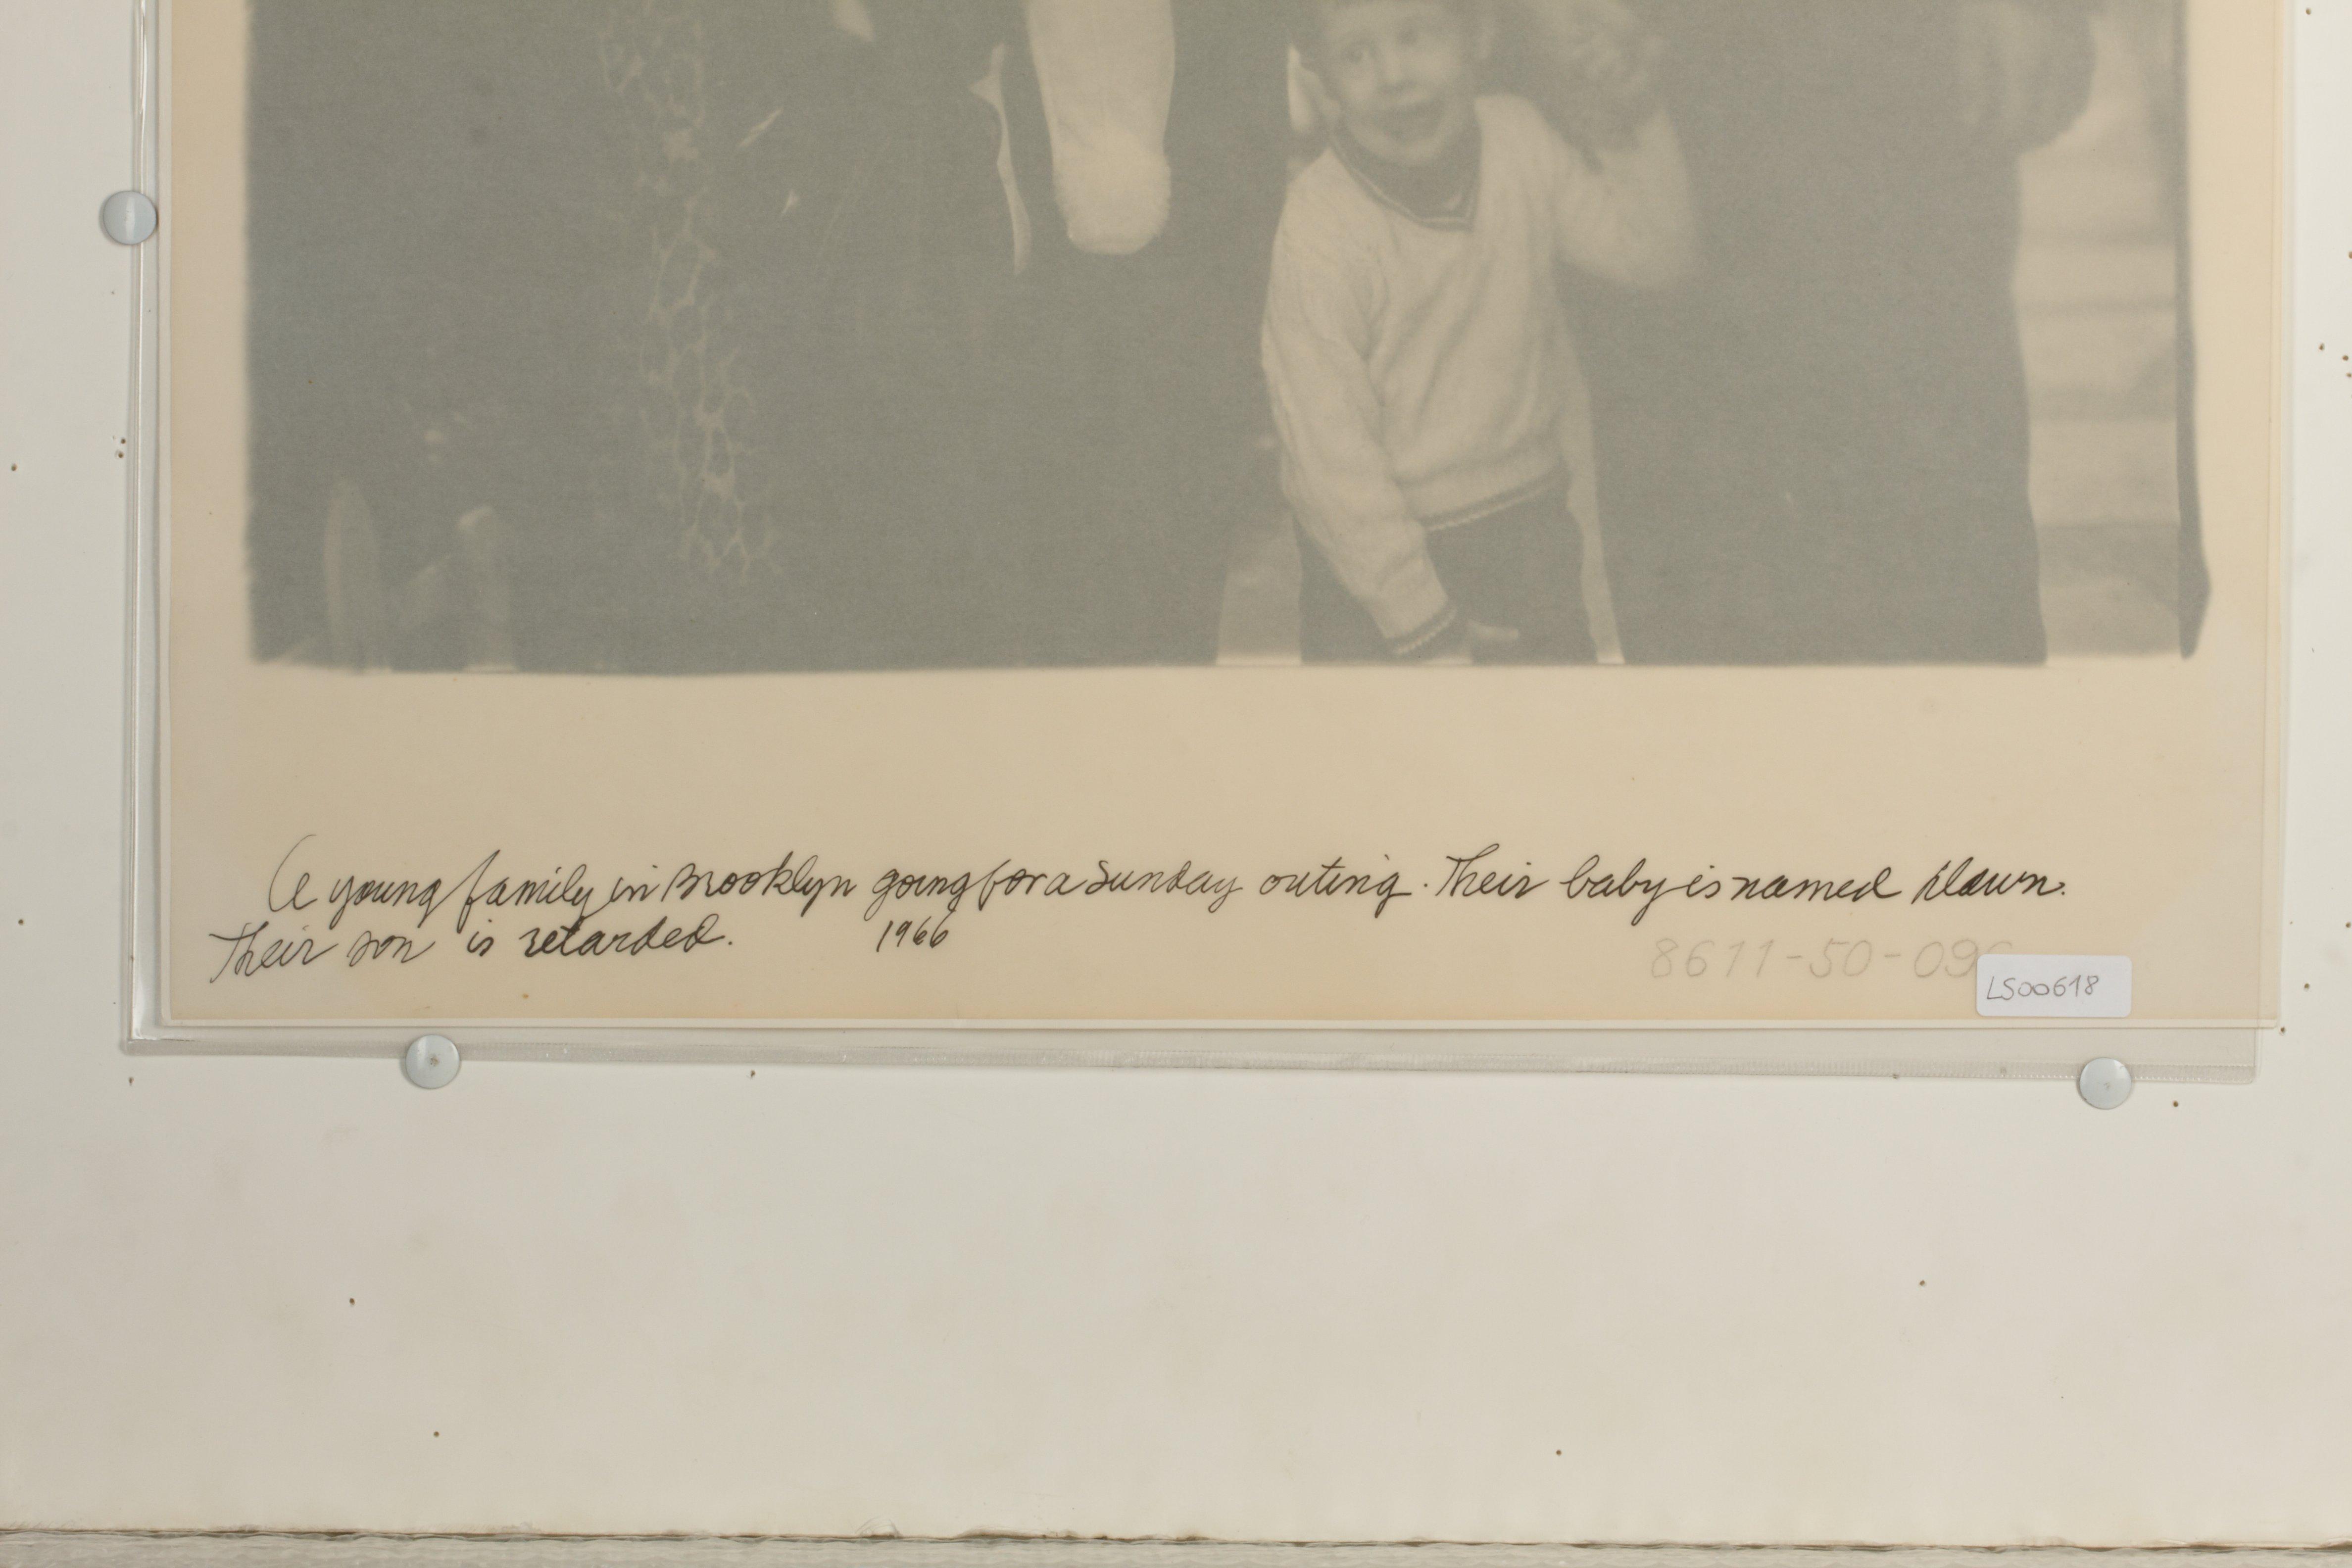 A young family in Brooklyn going for a Sunday outing. Their baby is named Dawn.
Their son is retarded. 1966
8611-50-09
LS00618